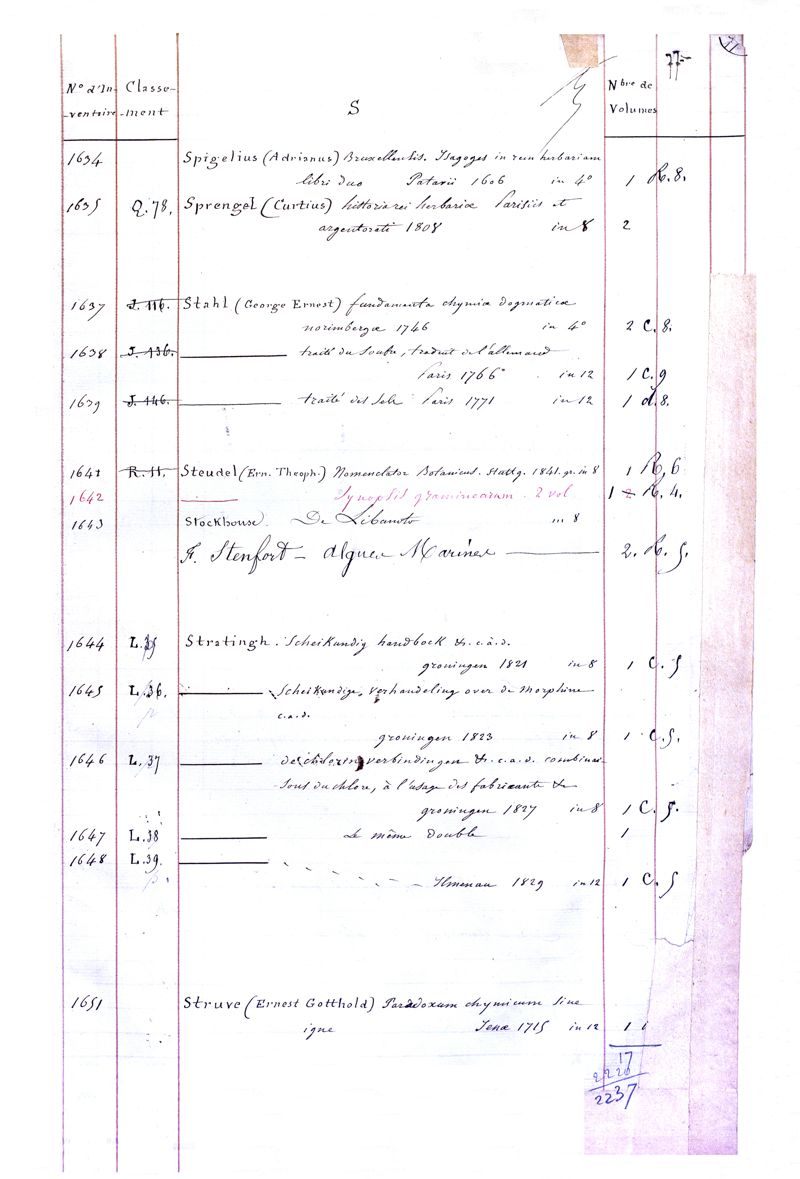 77
N° d'In- Classe- Nbre de
S
-ventaire -ment Volumes
1634 Spigelius (Adrianus) Bruxellensis. Isagoges in rem herbariam
libri duo Patavii 1606 in 4° 1 R.8.
1635 Q.78. Sprengel (Curtius) historia rei herbariæ Parisiis et
argentorati 1808 in 8 2
1637 J.116. Stahl (George Ernest) fundamenta chymiæ dogmaticæ
norimbergæ 1746 in 4° 2 C.8.
1638 J.136. traité du Soufre, traduit de l'allemand
Paris 1766 in 12 1 C.9
1639 J.146. traité des Sels Paris 1771 in 12 1 d.8.
1641 R.11. Steudel (Ern. Theoph.) Nomenclator Botanicus. Stuttg. 1841. gr. in 8 1 R.6
1642 Synopsis graminearum. 2 vol. 1 2 R.4.
1643 Stockhouse. De Libanoto in 8
F. Stenfort - algues Marines 2. R. 5.
1644 L.35 Stratingh. Scheikundig handboek &. c.à.d.
groningen 1821 in 8 1 C.5
1645 L.36. Scheikundige verhandeling over de morphine
c.a.d.
groningen 1823 in 8 1 C.5.
1646 L.37 de chlorin verbindingen &. c.a.d. combinai-
sons du chlore, à l'usage des fabricants &
groningen 1827 in 8 1 C.5.
1647 L.38 Le même double 1
1648 L.39.
Ilmenau 1829 in 12 1 C.5
1651 Struve (Ernest Gotthold) Paradoxum chymicum sine
igne Jenæ 1715 in 12 1 1
17
2220
2237